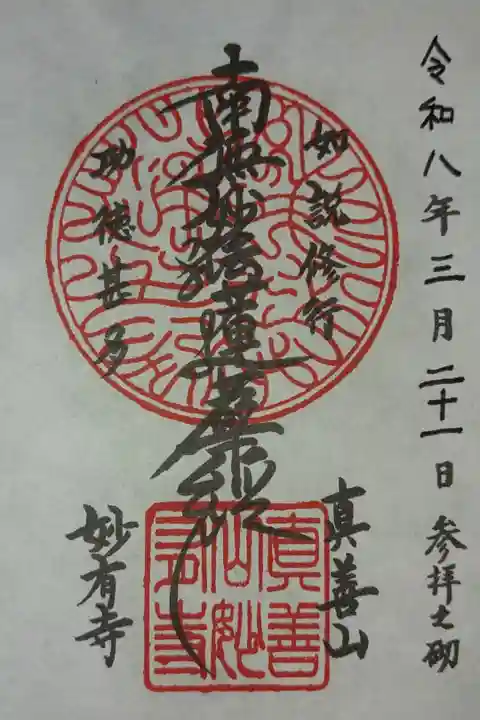 令和八年三月二十一日参拝之砌
如説修行
南無妙法蓮華経
功徳甚多
真善山
妙有寺
真善
山妙
有寺